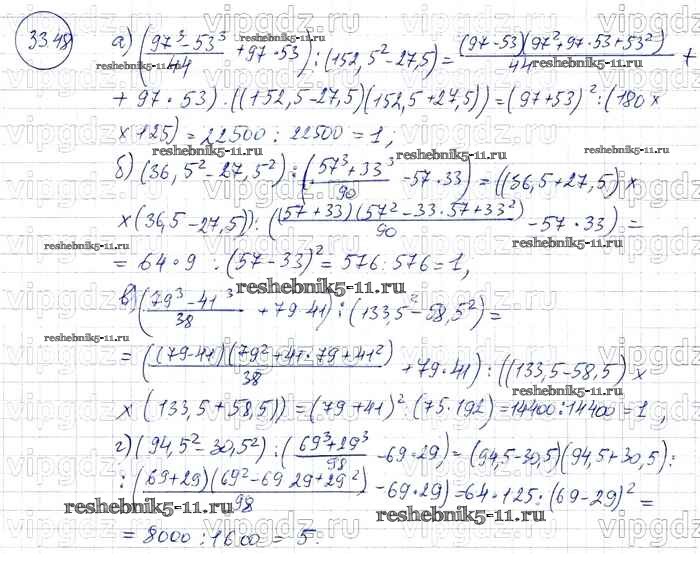 33.48
а) ((97³ - 53³)/44 + 97 · 53) : (152,5² - 27,5) = ((97 - 53)(97² + 97 · 53 + 53²))/44 +
+ 97 · 53) : ((152,5 - 27,5)(152,5 + 27,5)) = (97 + 53)² : (180 ×
× 125) = 22500 : 22500 = 1;
б) (36,5² - 27,5²) : ((57³ + 33³)/90 - 57 · 33) = ((36,5 + 27,5) ×
× (36,5 - 27,5)) : (((57 + 33)(57² - 33 · 57 + 33²)/90 - 57 · 33) =
= 64 · 9 : (57 - 33)² = 576 : 576 = 1;
в) ((79³ - 41³)/38 + 79 · 41) : (133,5² - 58,5²) =
= (((79 - 41)(79² + 41 · 79 + 41²)/38 + 79 · 41) : ((133,5 - 58,5) ×
× (133,5 + 58,5)) = (79 + 41)² : (75 · 192) = 14400 : 14400 = 1;
г) (94,5² - 30,5²) : ((69³ + 29³)/98 - 69 · 29) = (94,5 - 30,5)(94,5 + 30,5) :
: ((69 + 29)(69² - 69 29 + 29²)/98 - 69 · 29) = 64 · 125 : (69 - 29)² =
= 8000 : 1600 = 5.
vipgdz.ru
reshebnik5-11.ru